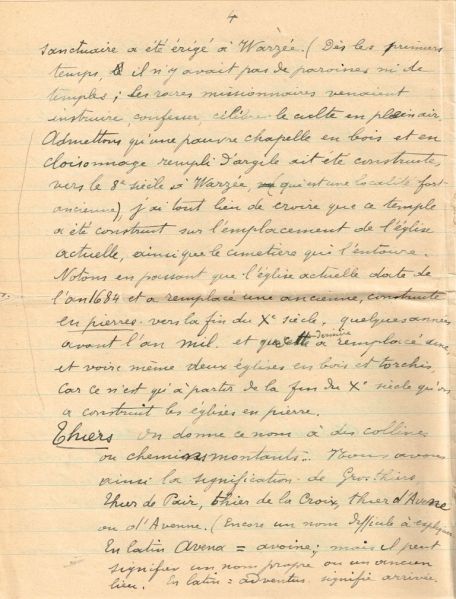 4
sanctuaire a été érigé à Warzée. (Dès les premiers
temps, il n'y avait pas de paroisses ni de
temples; les rares missionnaires venaient
instruire, confesser, célébrer le culte en plein air.
Admettons qu'une pauvre chapelle en bois et en
cloisonnage rempli d'argile ait été construite
vers le 8e siècle à Warzée (qui est une localité fort
ancienne), j'ai tout lieu de croire que ce temple
a été construit sur l'emplacement de l'église
actuelle, ainsi que le cimetière qui l'entoure.
Notons en passant que l'église actuelle date de
l'an 1684 et a remplacé une ancienne, construite
en pierres vers la fin du Xe siècle, quelques années
avant l'an mil. et que cette dernière a remplacé une
et voire même deux églises en bois et torchis,
car ce n'est qu'à partir de la fin du Xe siècle qu'on
a construit les églises en pierre.
Thiers On donne ce nom à des collines
ou chemins montants. Nous avons
ainsi la signification de Gros thiers
thier de Pair, thier de la Croix, thier d'Avene
ou d'Avenne. (Encore un nom difficile à expliquer
En latin Avena = avoine; mais il peut
signifier un nom propre ou un ancien
lieu. En latin = adventus signifie arrivée.